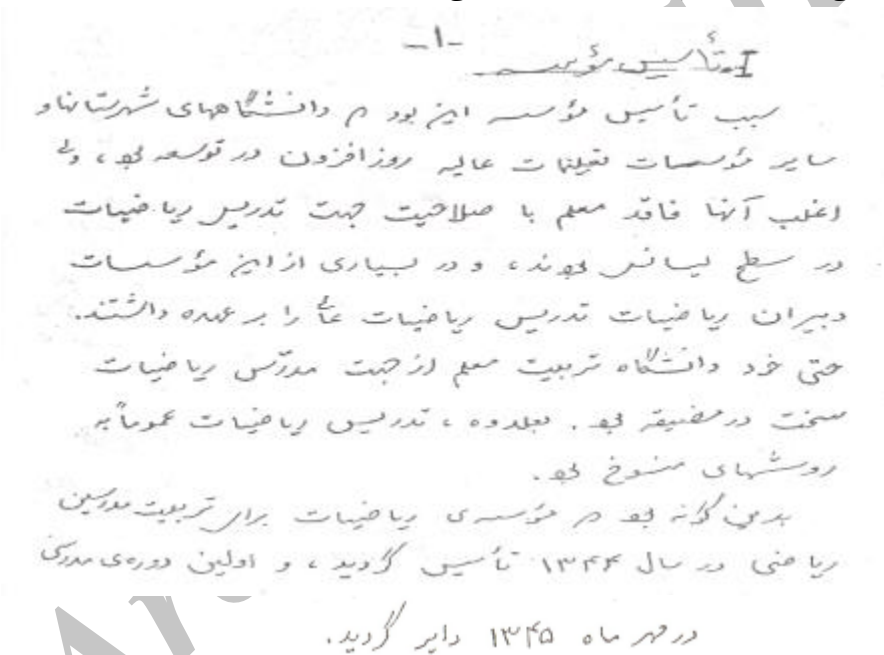 -۱-
I. تأسیس مؤسسه
سبب تأسیس مؤسسه این بود که دانشگاههای شهرستانها و
سایر مؤسسات تعلیمات عالیه روزافزون در توسعه بود، ولی
اغلب آنها فاقد معلم با صلاحیت جهت تدریس ریاضیات
در سطح لیسانس بودند، و در بسیاری از این مؤسسات
دبیران ریاضیات تدریس ریاضیات عالی را بر عهده داشتند.
حتی خود دانشگاه تربیت معلم از جهت مدرّس ریاضیات
سخت در مضیقه بود. بعلاوه، تدریس ریاضیات عموماً به
روشهای منسوخ بود.
بدین گونه بود که مؤسسه‌ی ریاضیات برای تربیت مدرسین
ریاضی در سال ۱۳۴۴ تأسیس گردید، و اولین دوره‌ی مدرسی
در مهر ماه ۱۳۴۵ دایر گردید.